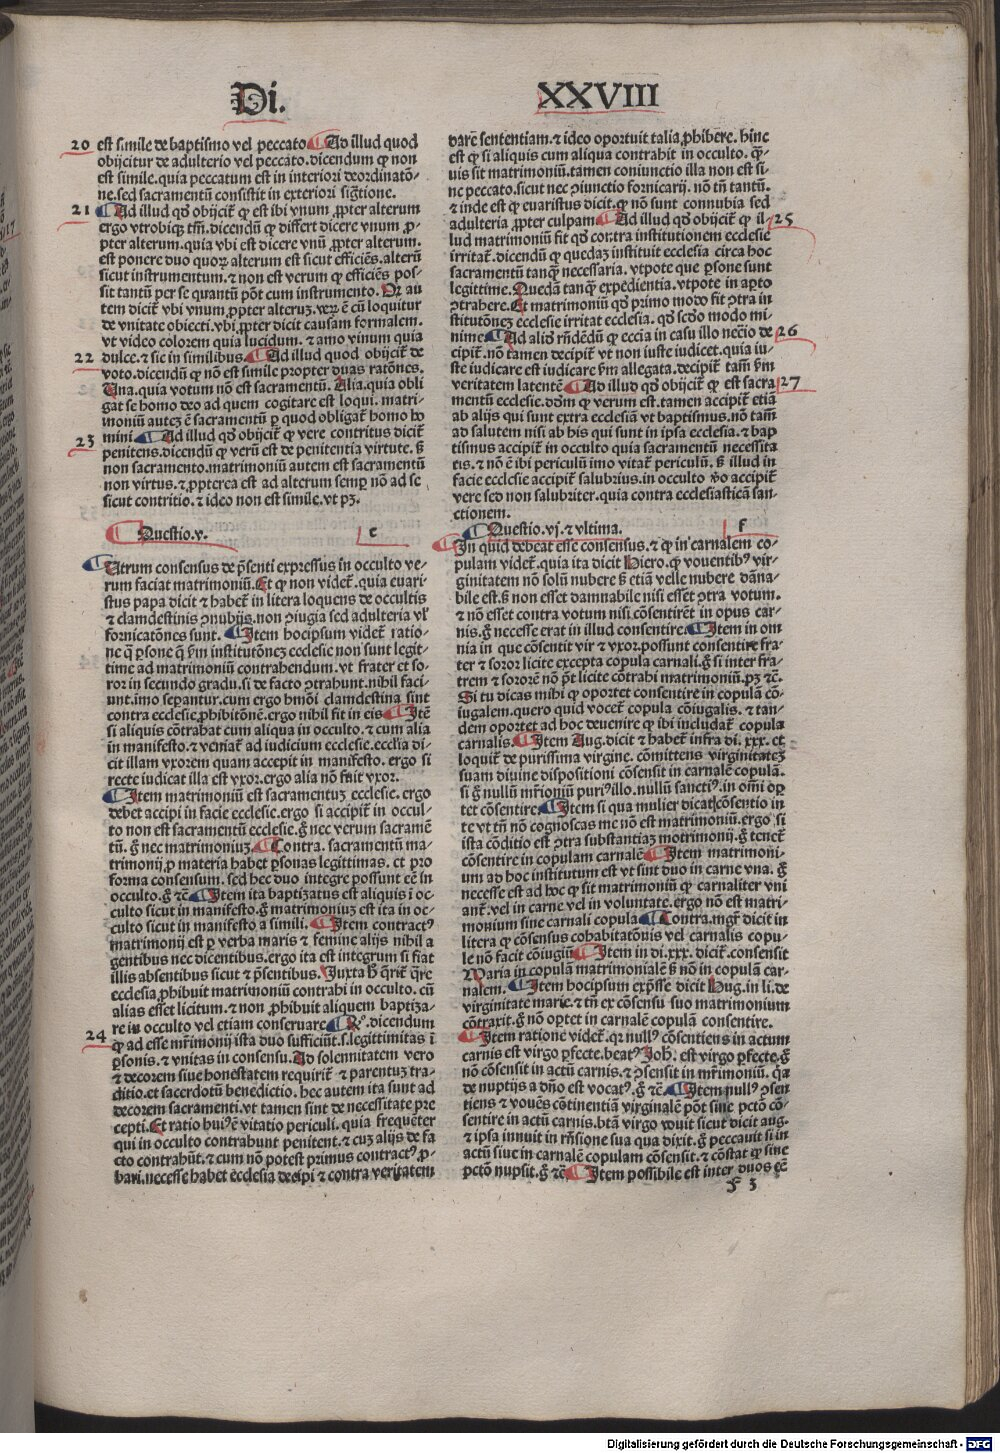 Di. XXVIII
20 est simile de baptismo vel peccato Ad illud quod
obijcitur de adulterio vel peccato. dicendum ꝙ non
est simile. quia peccatum est in interiori deordinatō-
ne. sed sacramentū consistit in exteriori sigtione.
21 Ad illud qđ obijcit̄ ꝙ est ibi vnum ꝓpter alterum
ergo vtrobiqꝫ tm̄. dicendū ꝙ differt dicere vnum ꝓ-
pter alterum. quia vbi est dicere vnū ꝓpter alterum.
est ponere duo quoꝝ alterum est sicut efficiēs. alterū
sicut instrumentum. ⁊ non est verum ꝙ efficiēs pos-
sit tantū per se quantū pōt cum instrumento. Or au
tem dicit̄ vbi vnum ꝓpter alteruꝫ. verꝝ ē cū loquitur
de vnitate obiecti. vbi ꝓpter dicit causam formalem.
vt video colorem quia lucidum. ⁊ amo vinum quia
22 dulce. ⁊ sic in similibus. Ad illud quod obijcit̄ de
voto. dicendū ꝙ nō est simile propter duas ratōnes.
Una. quia votum nō est sacramentū. Alia. quia obli
gat se homo deo ad quem cogitare est loqui. matri-
moniū auteꝫ ē sacramentū ꝑ quod obligat̄ homo ho
23 mini Ad illud qđ obijcit̄ ꝙ vere contritus dicit̄
penitens. dicendū ꝙ verū est de penitentia virtute. ꝭ
non sacramento. matrimoniū autem est sacramentū
non virtus. ⁊ ꝓpterea est ad alterum semꝑ nō ad se
sicut contritio. ⁊ ideo non est simile. vt pꝫ.
Questio. v. e
Utrum consensus de p̄senti expressus in occulto ve-
rum faciat matrimoniū. Et ꝙ non videt̄. quia euari
stus papa dicit ⁊ habet̄ in litera loquens de occultis
⁊ clandestinis ꝯnubijs. non ꝯiugia sed adulteria vl̓
fornicatōnes sunt. Item hocipsum videt̄ ratio-
ne ꝗ ꝑsone ꝗ ẜm institutōnez ecclesie non sunt legit-
time ad matrimoniū contrahendum. vt frater et so-
ror in secundo gradu. si de facto ꝯtrahunt. nihil faci-
unt. imōi seꝑantur. cum ergo hm̄oi clamdestina sint
contra ecclesie ꝓhibitōnē. ergo nihil fit in eis Itē
si aliquis cōtrahat cum aliqua in occulto. ⁊ cum alia
in manifesto. ⁊ veniat̄ ad iudicium ecclesie. ecclīa di-
cit illam vxorem quam accepit in manifesto. ergo si
recte iudicat illa est vxor. ergo alia nō fuit vxor.
Item matrimoniū est sacramentuꝫ ecclesie. ergo
debet accipi in facie ecclesie. ergo si accipit̄ in occul-
to non est sacramentū ecclesie. g̊ nec verum sacramē
tū. g̊ nec matrimoniuꝫ Contra. sacramentū ma-
trimonij ꝓ materia habet ꝑsonas legittimas. et pro
forma consensum. sed hec duo integre possunt eē in
occulto. g̊ ⁊c̄ Item ita baptizatus est aliquis ī oc-
culto sicut in manifesto. g̊ matrimoniuꝫ est ita in oc-
culto sicut in manifesto a simili. Item contractꝰ
matrimonij est ꝑ verba maris ⁊ femine alijs nihil a
gentibus nec dicentibus. ergo ita est integrum si fiat
illis absentibus sicut ⁊ p̄sentibus. Juxta h̓ q̄rit̄ q̄re
ecclesia ꝓhibuit matrimoniū contrahi in occulto. cū
alias esset licitum. ⁊ non ꝓhibuit aliquem baptiza-
re in occulto vel etiam conseruare ℞º. dicendum
24 ꝙ ad esse mr̄imonij ista duo sufficiūt. s. legittimitas ī
ꝑsonis. ⁊ vnitas in consensu. Ad solennitatem vero
⁊ decorem siue honestatem requirit̄ ⁊ parentuꝫ tra-
ditio. et sacerdotū benedictio. hec autem ita sunt ad
decorem sacramenti. vt tamen sint de necessitate pre
cepti. Et ratio huiꝰ ē vitatio periculi. quia frequēter
qui in occulto contrahunt penitent. ⁊ cuꝫ alijs de fa
cto contrahūt. ⁊ cum nō potest primus contractꝰ ꝓ-
bari. necesse habet ecclesia decipi ⁊ contra veritatem
dare sententiam. ⁊ ideo oportuit talia ꝓhibere. hinc
est ꝙ si aliquis cum aliqua contrahit in occulto. ꝙ-
uis sit matrimoniū. tamen coniunctio illa non est si-
ne peccato. sicut nec ꝯiunctio fornicarij. nō tn̄ tantū.
⁊ inde est ꝙ euaristus dicit. ꝙ nō sunt connubia sed
adulteria ꝓpter culpam Ad illud qđ obijcit̄ ꝙ il- 25
lud matrimoniū fit qđ contra institutionem ecclesie
irritat̄. dicendū ꝙ quedaꝫ instituit ecclesia circa hoc
sacramentū tanꝗ̄ necessaria. vtpote que ꝑsone sunt
legittime. Quedā tanꝗ̄ expedientia. vtpote in aꝑto
ꝯtrahere. Et matrimoniū qđ primo modo fit ꝯtra in
stitutōnez ecclesie irritat ecclesia. qđ scďo modo mi-
nime Ad aliđ rn̄dēdū ꝙ eccīa in casu illo nec̄io de 26
cipit̄. nō tamen decipit̄ vt non iuste iudicet. quia iu-
ste iudicare est iudicare ẜm allegata. decipit̄ tam̄ ẜm
veritatem latentē Ad illud qđ obijcit̄ ꝙ est sacra 27
mentū ecclesie. dd̄m ꝙ verum est. tamen accipit̄ etiā
ab alijs qui sunt extra ecclesiā vt baptismus. nō tam̄
ad salutem nisi ab his qui sunt in ipsa ecclesia. ⁊ bap
tismus accipit̄ in occulto quia sacramentū necessita
tis. ⁊ nō ē ibi periculū imo vitat̄ periculū. ꝭ illud in
facie ecclesie accipit̄ salubrius. in occulto ꝟo accipit̄
vere sed non salubriter. quia contra ecclesiasticā san-
ctionem.
Questio. vj. ⁊ vltima. f
In quid debeat esse consensus. ⁊ ꝙ in carnalem co-
pulam videt̄. quia ita dicit Hiero. ꝙ vouentibꝰ vir-
ginitatem nō solū nubere ꝭ etiā velle nubere dāna-
bile est. ꝭ non esset damnabile nisi esset ꝯtra votum.
⁊ nō esset contra votum nisi cōsentiret̄ in opus car-
nis. g̊ necesse erat in illud consentire. Item in om
nia in que cōsentit vir ⁊ vxor. possunt consentire fra-
ter ⁊ soror licite excepta copula carnali. g̊ si inter fra-
trem ⁊ sororē nō p̄t licite cōtrahi matrimoniū. pꝫ ⁊c̄.
Si tu dicas mihi ꝙ oportet consentire in copulā cō-
iugalem. quero quid vocet̄ copula cōiugalis. ⁊ tan-
dem oportet ad hoc deuenire ꝙ ibi includat̄ copula
carnalis. Item Aug. dicit ⁊ habet̄ infra di. xxx. et
loquit̄ de purissima virgine. cōmittens virginitateꝫ
suam diuine dispositioni cōsensit in carnalē copulā.
si g̊ nullū mr̄ioniū puriꝰ illo. nullū sanctiꝰ. in om̄i oꝑ
tet cōsentire. Item si qua mulier dicat cōsentio in
te vt tn̄ nō cognoscas me nō est matrimoniū. ergo si
ista cōditio est ꝯtra substantiaꝫ motrimonij. g̊ tenet̄
cōsentire in copulam carnalē Item matrimoni-
um ad hoc institutum est vt sint duo in carne vna. g̊
necesse est ad hoc ꝙ sit matrimoniū ꝙ carnaliter vni
ant̄. vel in carne vel in voluntate. ergo nō est matri-
monium sine carnali copula Contra. mgr̄ dicit in
litera ꝙ cōsensus cohabitatōnis vel carnalis copu-
le nō facit cōiugiū Item in di. xxx. dicit̄. consensit
Maria in copulā matrimonialē ꝭ nō in copulā car-
nalem. Item hocipsum exp̄sse dicit Hug. in li. de
virginitate marie. ⁊ tn̄ ex cōsensu suo matrimonium
cōtraxit. g̊ nō oꝑtet in carnalē copulā consentire.
Item ratione videt̄. qꝛ nullꝰ cōsentiens in actum
carnis est virgo ꝑfecte. beatꝰ Joh̄. est virgo ꝑfecte. g̊
nō cōsensit in actū carnis. ⁊ ꝯsensit in mr̄imoniū. qꝛ
de nuptijs a dn̄o est vocatꝰ. g̊ ⁊c̄ Item nullꝰ ꝯsen
tiens ⁊ vouēs cōtinentiā virginalē pōt sine pctō cō-
sentire in actū carnis. btā virgo vouit sicut dicit aug.
⁊ ipsa innuit in rn̄sione sua qua dixit. g̊ peccauit si in
actū siue in carnalē copulam cōsensit. ⁊ cōstat ꝙ sine
pctō nupsit. g̊ ⁊c̄ Item possibile est inter duos eē
f 3
Digitalisierung gefördert durch die Deutsche Forschungsgemeinschaft - DFG